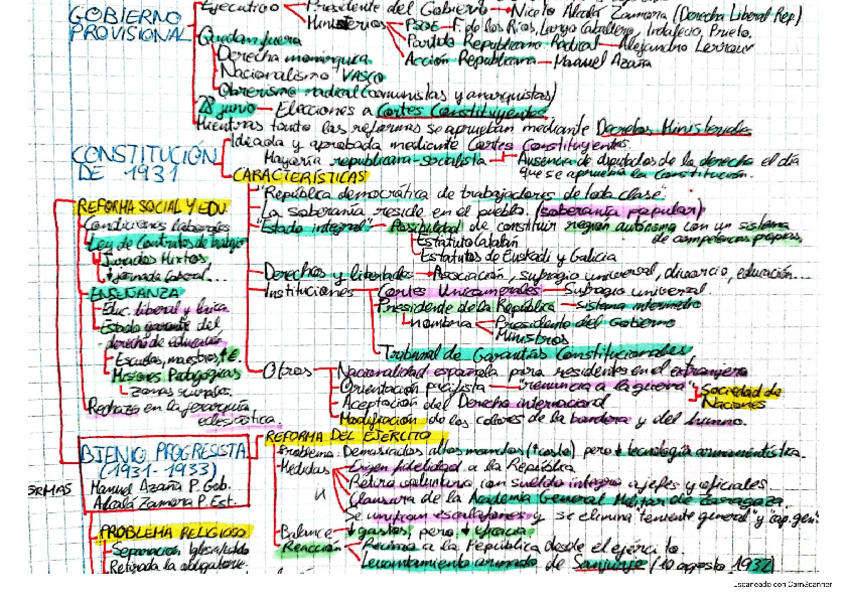 GOBIERNO
PROVISIONAL
Ejecutivo
Presidente del Gobierno
Niceto Alcalá Zamora (Derecha Liberal Rep.)
Ministerios
PSOE - F. de los Ríos, Largo Caballero, Indalecio, Prieto.
Partido Republicano Radical - Alejandro Lerroux
Acción Republicana - Manuel Azaña
Quedan fuera
Derecha monárquica
Nacionalismo VASCO
Obrerismo radical (comunistas y anarquistas)
28 junio - Elecciones a Cortes Constituyentes
Mientras tanto las reformas se aprueban mediante Decretos Ministeriales
CONSTITUCIÓN
DE 1931
Ideada y aprobada mediante Cortes Constituyentes.
Mayoría republicana-socialista
Ausencia de diputados de la derecha el día
que se aprueba la Constitución.
CARACTERÍSTICAS
"República democrática de trabajadores de toda clase"
La soberanía reside en el pueblo. (soberanía popular)
"Estado integral"
Posibilidad de constituir región autónoma con un sistema
de competencias propias.
Estatuto Catalán
Estatutos de Euskadi y Galicia
Derechos y libertades
Asociación, sufragio universal, divorcio, educación...
Instituciones
Cortes Unicamerales - Sufragio universal
Presidente de la República - sistema intermedio
nombra
Presidente del Gobierno
Ministros
Tribunal de Garantías Constitucionales
Otros
Nacionalidad española para residentes en el extranjero
Orientación pacifista - "renuncia a la guerra"
Aceptación del Derecho internacional
Sociedad de
Naciones
Modificación de los colores de la bandera y del himno.
REFORMA SOCIAL Y EDU
Condiciones laborales
Ley de Contratos de trabajo
Jurados Mixtos
↓ jornada laboral...
ENSEÑANZA
Educ. liberal y laica.
Estado garante del
derecho de educación
Escuelas, maestros ↑€.
Misiones Pedagógicas
zonas rurales.
Rechazo en la jerarquía
eclesiástica.
BIENIO PROGRESISTA
(1931-1933)
Manuel Azaña P. Gob.
Alcalá Zamora P. Est.
ORMAS
PROBLEMA RELIGIOSO
Separación Iglesia/Estado
Retirada la obligatorie.
REFORMA DEL EJÉRCITO
Problema: Demasiados altos mandos (↑coste) pero ↓ tecnología armamentística.
Medidas
Exigen fidelidad a la República.
Retiro voluntario, con sueldo íntegro a jefes y oficiales...
Clausura de la Academia General Militar de Zaragoza.
Se unifican escalafones y se elimina "teniente general" y "cap. gen".
Balance - ↓ gastos, pero ↓ eficacia
Reacción
a la República desde el ejército.
Levantamiento armado de Sanjurjo (10 agosto 1932)
Escaneado con CamScanner